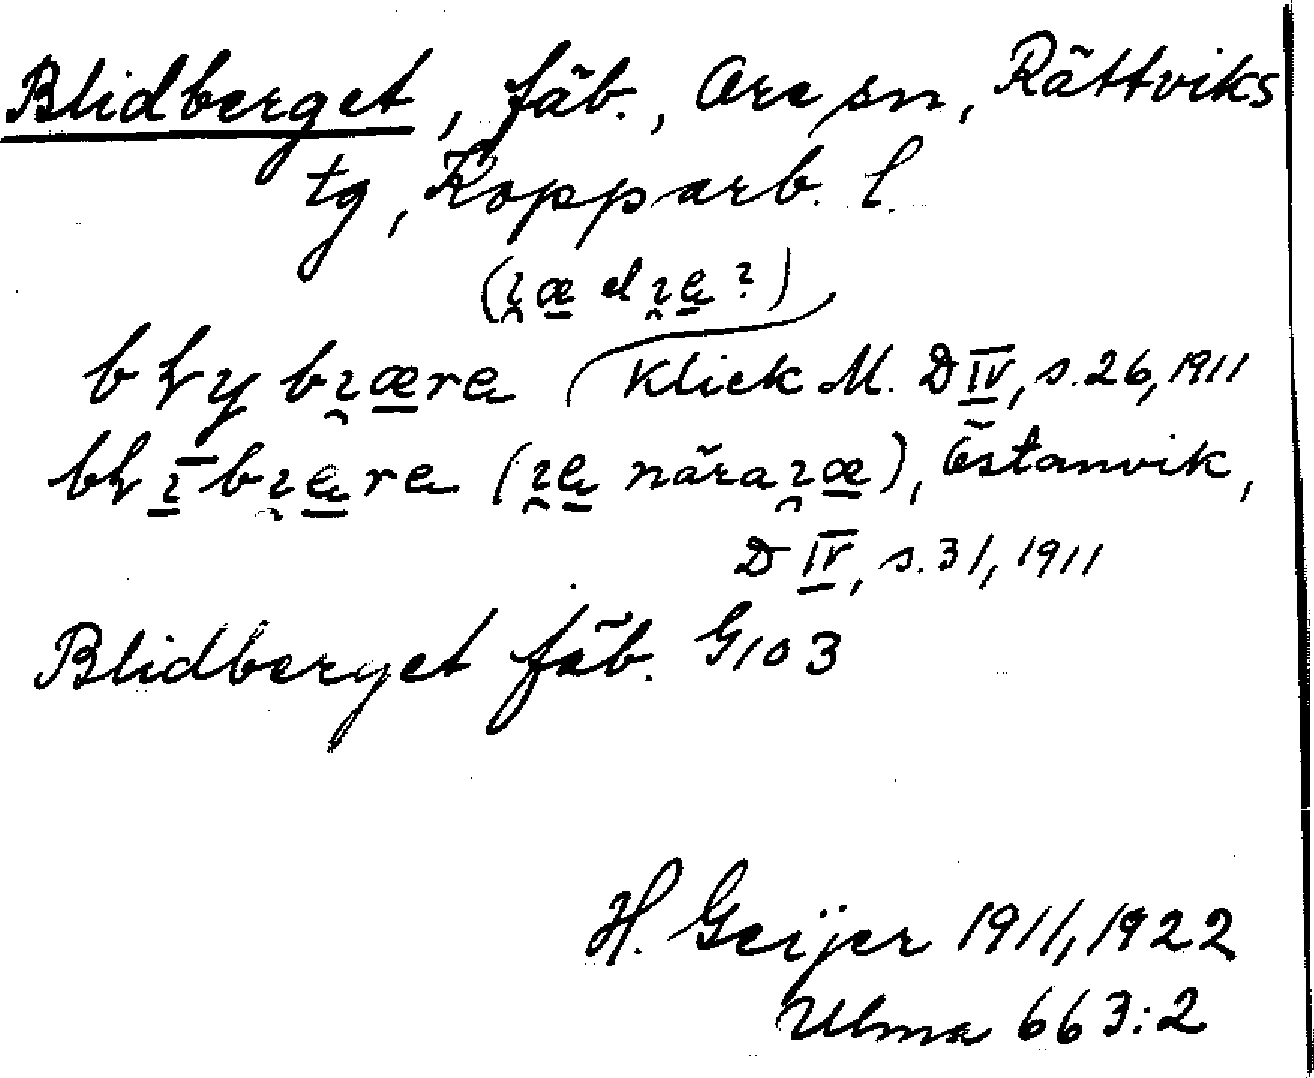 Blidberget, fäb., Ore sn, Rättviks
tg, Kopparb. l.
(ı̯æ el ı̯e ?)
bły bı̯æra (Klick M. D IV, s. 26, 1911
błı̄bı̯era (ı̯e nära ı̯æ), Östanvik,
D IV, s. 31, 1911
Blidberget fäb. G103
H. Geijer 1911, 1922
Ulma 663:2